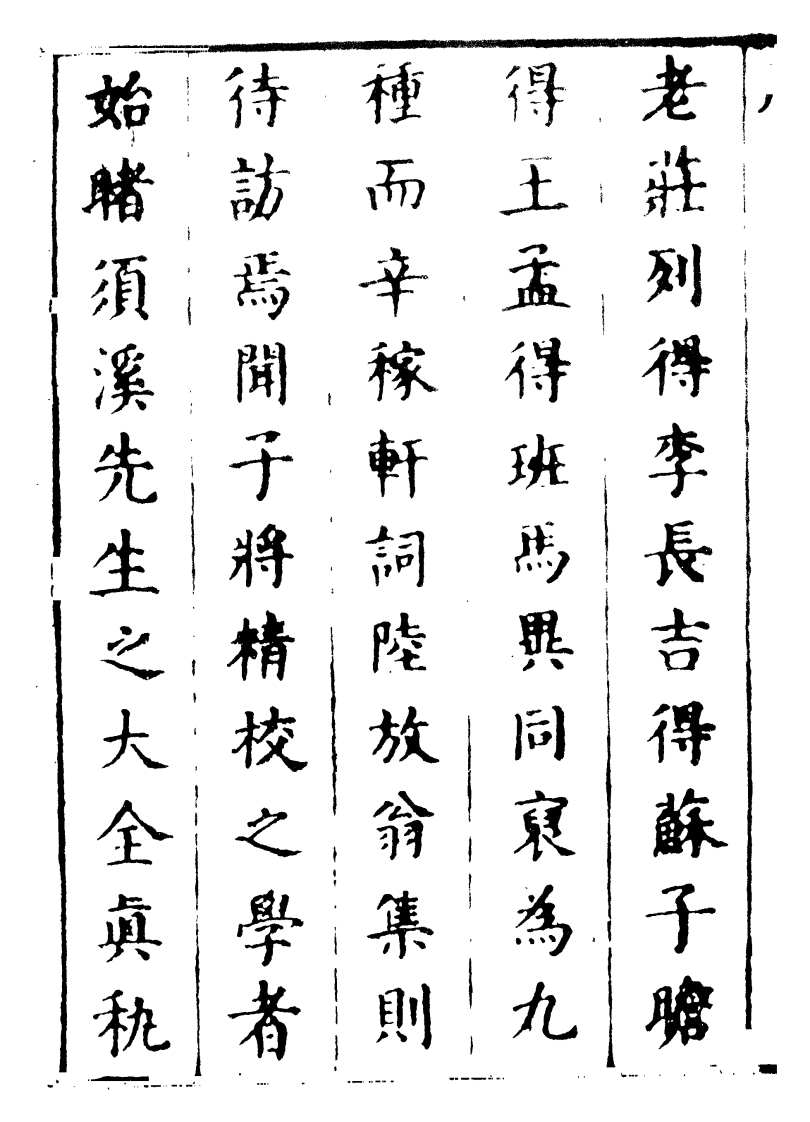 老莊列得李長吉得蘇子瞻
得王孟得班馬異同裒為九
種而辛稼軒詞陸放翁集則
待訪焉聞子將精校之學者
始睹須溪先生之大全真秇